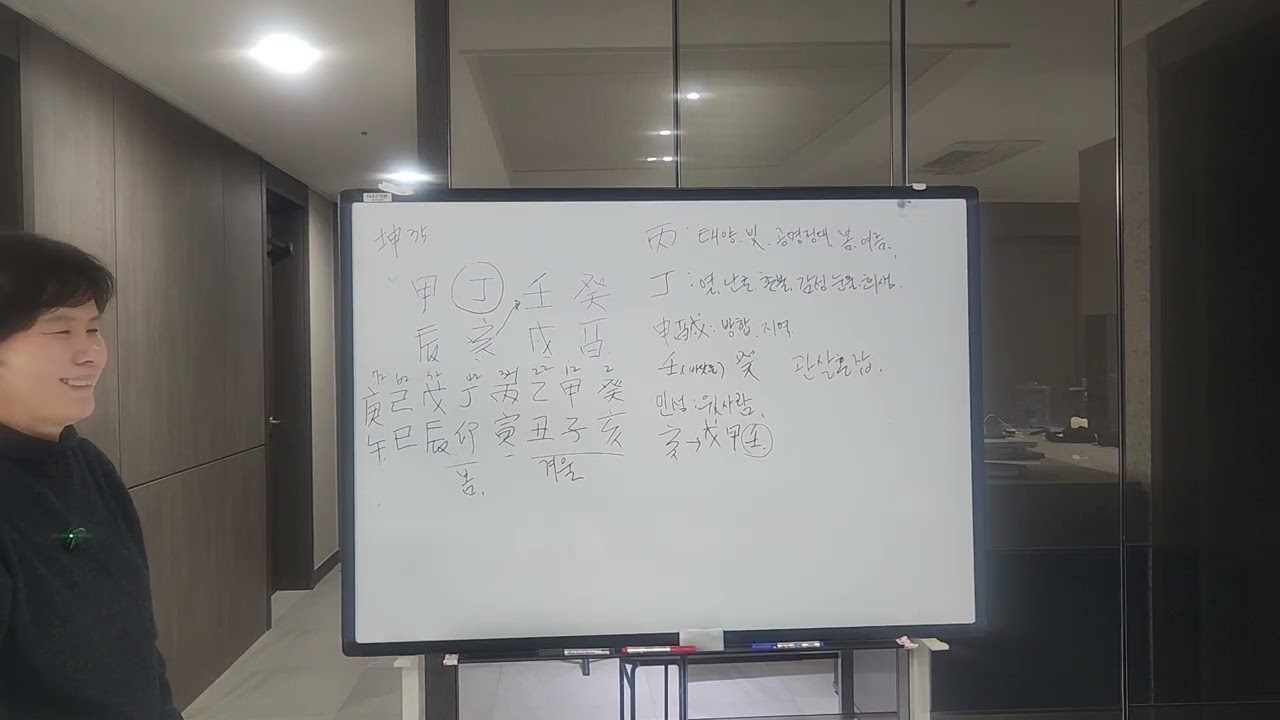 坤 35
甲 丁 壬 癸
辰 亥 戌 酉
72 62 52 42 32 22 12 2
庚 己 戊 丁 丙 乙 甲 癸
午 巳 辰 卯 寅 丑 子 亥
봄. 겨울
丙 : 태양. 빛. 공명정대. 봄. 여름.
丁 : 열. 난로 촛불. 감정 눈물. 희생.
申酉戌 : 방합. 지역
壬 癸 관살혼잡.
인성 : 윗사람.
亥 → 戊 甲 壬